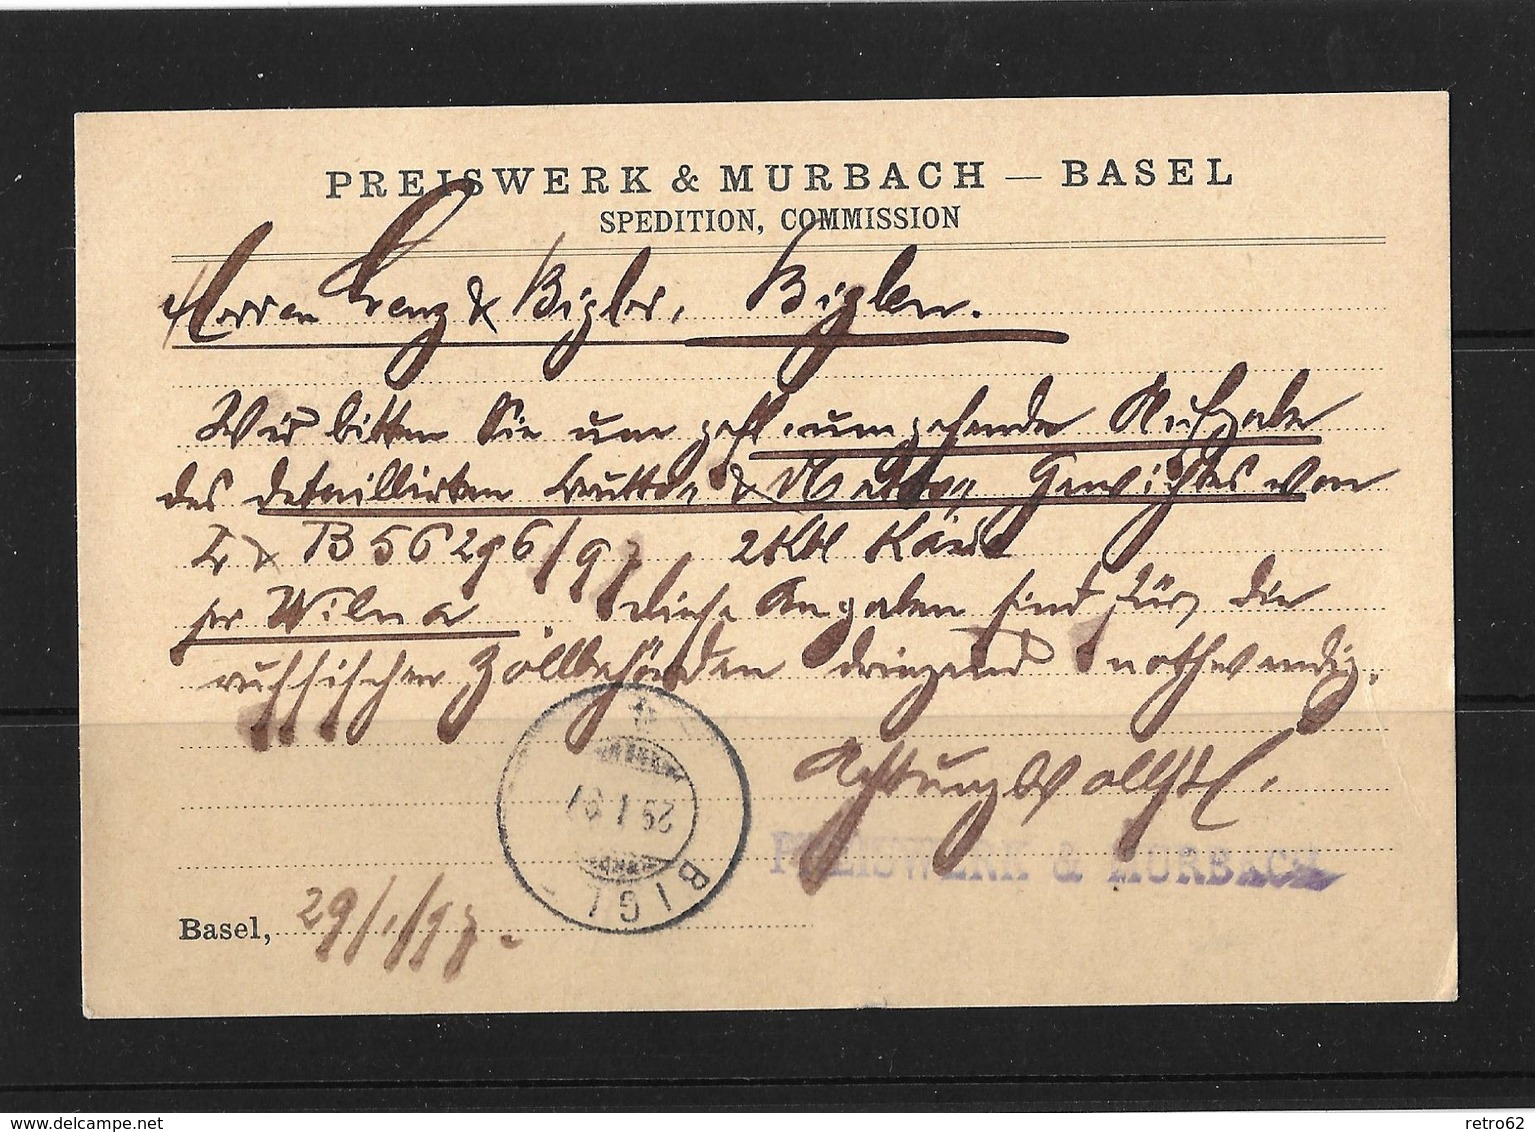 PREISWERK & MURBACH — BASEL
SPEDITION, COMMISSION
Herren Lenz & Bigler, Biglen.
Wir bitten Sie um gefl. umgehende Aufgabe
des detaillirten Brutto, & Netto, Gewichtes von
L & B 56296/97 2 Kbl Käse
per Wilna. Diese Angaben sind für die
russischen Zollbehörden dringend nothwendig.
Achtungsvollst
PREISWERK & MURBACH
BIGL
29 I 97
Basel, 29/1/97.
www.delcampe.net
retro62